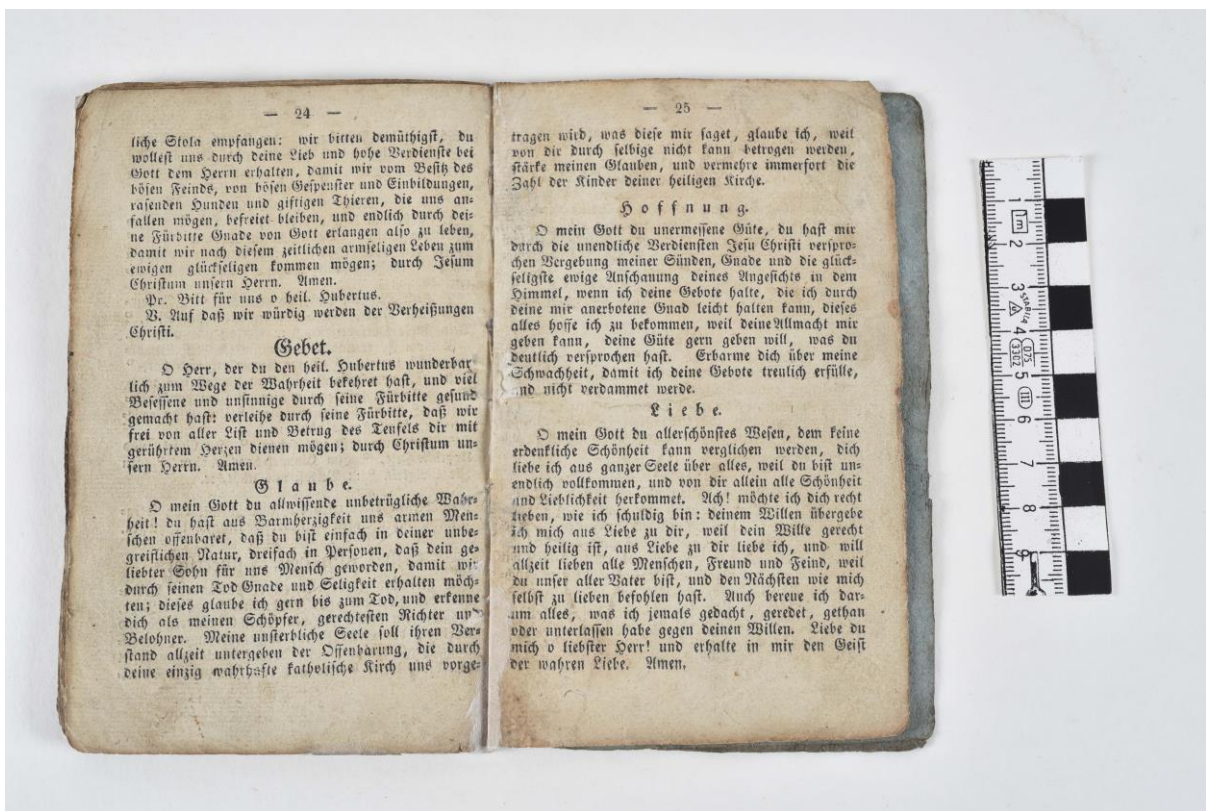 — 24 —
liche Stola empfangen: wir bitten demüthigst, du
wollest uns durch deine Lieb und hohe Verdienste bei
Gott dem Herrn erhalten, damit wir vom Besitz des
bösen Feinds, von bösen Gespenster und Einbildungen,
rasenden Hunden und giftigen Thieren, die uns an-
fallen mögen, befreiet bleiben, und endlich durch dei-
ne Fürbitte Gnade von Gott erlangen also zu leben,
damit wir nach diesem zeitlichen armseligen Leben zum
ewigen glückseligen kommen mögen; durch Jesum
Christum unsern Herrn. Amen.
Pr. Bitt für uns o heil. Hubertus.
V. Auf daß wir würdig werden der Verheißungen
Christi.
Gebet.
O Herr, der du den heil. Hubertus wunderbar
lich zum Wege der Wahrheit bekehret hast, und viel
Besessene und unsinnige durch seine Fürbitte gesund
gemacht hast: verleihe durch seine Fürbitte, daß wir
frei von aller List und Betrug des Teufels dir mit
gerührtem Herzen dienen mögen; durch Christum un-
sern Herrn. Amen.
Glaube.
O mein Gott du allwissende unbetrügliche Wahr-
heit! du hast aus Barmherzigkeit uns armen Men-
schen offenbaret, daß du bist einfach in deiner unbe-
greiflichen Natur, dreifach in Personen, daß dein ge-
liebter Sohn für uns Mensch geworden, damit wir
durch seinen Tod Gnade und Seligkeit erhalten möch-
ten; dieses glaube ich gern bis zum Tod, und erkenne
dich als meinen Schöpfer, gerechtesten Richter und
Belohner. Meine unsterbliche Seele soll ihren Ver-
stand allzeit untergeben der Offenbarung, die durch
deine einzig wahrhafte katholische Kirch uns vorge-
— 25 —
tragen wird, was diese mir saget, glaube ich, weil
von dir durch selbige nicht kann betrogen werden,
stärke meinen Glauben, und vermehre immerfort die
Zahl der Kinder deiner heiligen Kirche.
Hoffnung.
O mein Gott du unermessene Güte, du hast mir
durch die unendliche Verdiensten Jesu Christi verspro-
chen Vergebung meiner Sünden, Gnade und die glück-
seligste ewige Anschanung deines Angesichts in dem
Himmel, wenn ich deine Gebote halte, die ich durch
deine mir anerbotene Gnad leicht halten kann, dieses
alles hoffe ich zu bekommen, weil deine Allmacht mir
geben kann, deine Güte gern geben will, was du
deutlich versprochen hast. Erbarme dich über meine
Schwachheit, damit ich deine Gebote treulich erfülle,
und nicht verdammet werde.
Liebe.
O mein Gott du allerschönstes Wesen, dem keine
erdenkliche Schönheit kann verglichen werden, dich
liebe ich aus ganzer Seele über alles, weil du bist un-
endlich vollkommen, und von dir allein alle Schönheit
und Lieblichkeit herkommet. Ach! möchte ich dich recht
lieben, wie ich schuldig bin: deinem Willen übergebe
ich mich aus Liebe zu dir, weil dein Wille gerecht
und heilig ist, aus Liebe zu dir liebe ich, und will
allzeit lieben alle Menschen, Freund und Feind, weil
du unser aller Vater bist, und den Nächsten wie mich
selbst zu lieben befohlen hast. Auch bereue ich dar-
um alles, was ich jemals gedacht, geredet, gethan
oder unterlassen habe gegen deinen Willen. Liebe du
mich o liebster Herr! und erhalte in mir den Geist
der wahren Liebe. Amen.
1
m
2
3
4
5
III
6
7
8
9